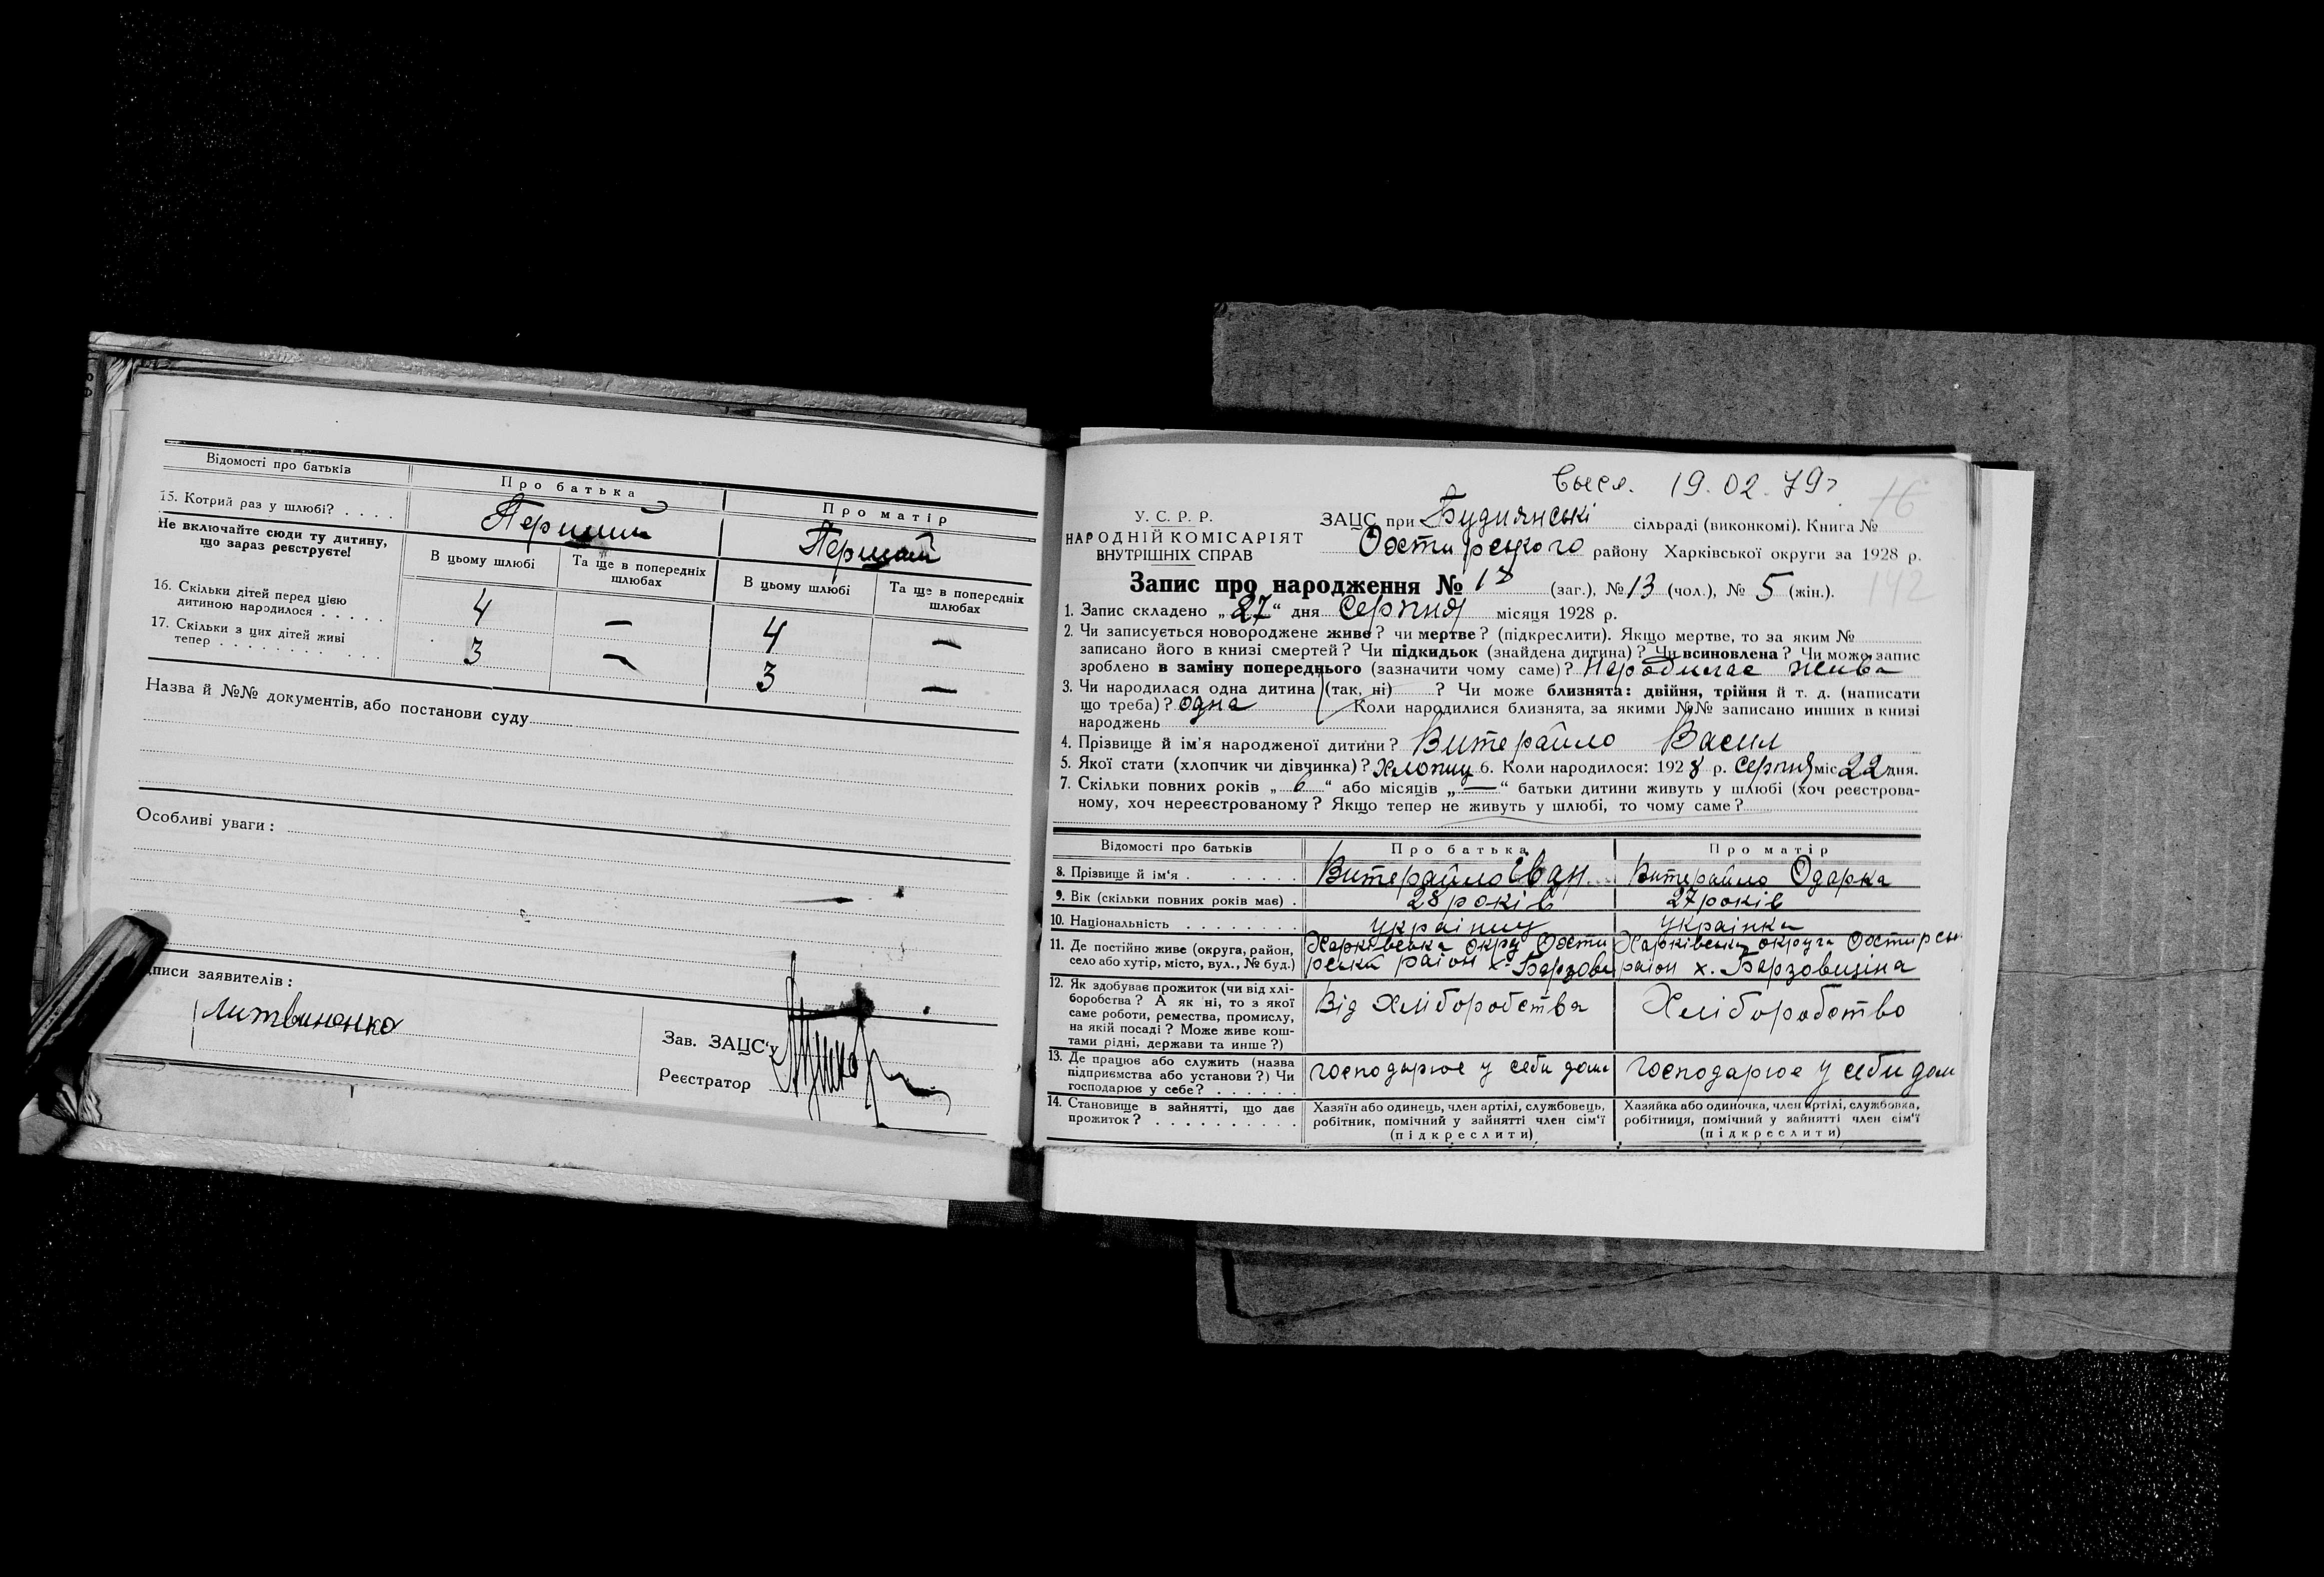 Відомості про батьків
Про батька
Про матір
15. Котрий раз у шлюбі? . . . .
Перший
Перший
Не включайте сюди ту дитину,
що зараз реєструєте!
В цьому шлюбі
Та ще в попередніх
шлюбах
В цьому шлюбі
Та ще в попередніх
шлюбах
16. Скільки дітей перед цією
дитиною народилося . . . . .
4
—
4
—
17. Скільки з цих дітей живі
тепер . . . . . . . . . . . .
3
—
3
—
Назва й №№ документів, або постанови суду
Особливі уваги:
писи заявителів:
Литвиненко
Зав. ЗАЦС'у
Реєстратор
19.02.79г
16
142
У. С. Р. Р.
НАРОДНІЙ КОМІСАРІЯТ
ВНУТРІШНІХ СПРАВ
ЗАЦС при Будянські сільраді (виконкомі). Книга №
Охтирського району Харківської округи за 1928 р.
Запис про народження № 18 (заг.), № 13 (чол.), № 5 (жін.).
1. Запис складено „27“ дня Серпня місяця 1928 р.
2. Чи записується новороджене живе? чи мертве? (підкреслити). Якщо мертве, то за яким №
записано його в книзі смертей? Чи підкидьок (знайдена дитина)? Чи всиновлена? Чи може запис
зроблено в заміну попереднього (зазначити чому саме)? Народилас жива
3. Чи народилася одна дитина (так, ні) ? Чи може близнята: двійня, трійня й т. д. (написати
що треба)? одна Коли народилися близнята, за якими №№ записано инших в книзі
народжень
4. Прізвище й ім'я народженої дитини? Витерайло Васил
5. Якої статі (хлопчик чи дівчинка)? Хлопиц 6. Коли народилося: 1928 р. Серпня міс 22 дня.
7. Скільки повних років „6“ або місяців „—“ батьки дитини живуть у шлюбі (хоч реєстрова-
ному, хоч нереєстрованому? Якщо тепер не живуть у шлюбі, то чому саме?
Відомості про батьків
Про батька
Про матір
8. Прізвище й ім'я . . . . . . .
Витерайло Іван
Витерайло Одарка
9. Вік (скільки повних років має) .
28 років
27 років
10. Національність . . . . . . . .
українц
українка
11. Де постійно живе (округа, район,
село або хутір, місто, вул., № буд.)
Харківська окру Охти
рська район х. Барзови
Харківська округа Охтирськ
район х. Барзовищина
12. Як здобуває прожиток (чи від хлі-
боробства? А як ні, то з якої
саме роботи, ремества, промислу,
на якій посаді? Може живе кош-
тами рідні, держави та инше?)
Від Хліборобства
Хліборобство
13. Де працює або служить (назва
підприємства або установи?) Чи
господарює у себе? . . . . . .
господарює у себи дома
господарює у себи дом
14. Становище в зайнятті, що дає
прожиток? . . . . . . . . . .
Хазяїн або одинець, член артілі, службовець,
робітник, помічний у зайнятті член сім'ї
(підкреслити)
Хазяйка або одиночка, член артілі, службовка,
робітниця, помічний у зайнятті член сім'ї
(підкреслити)